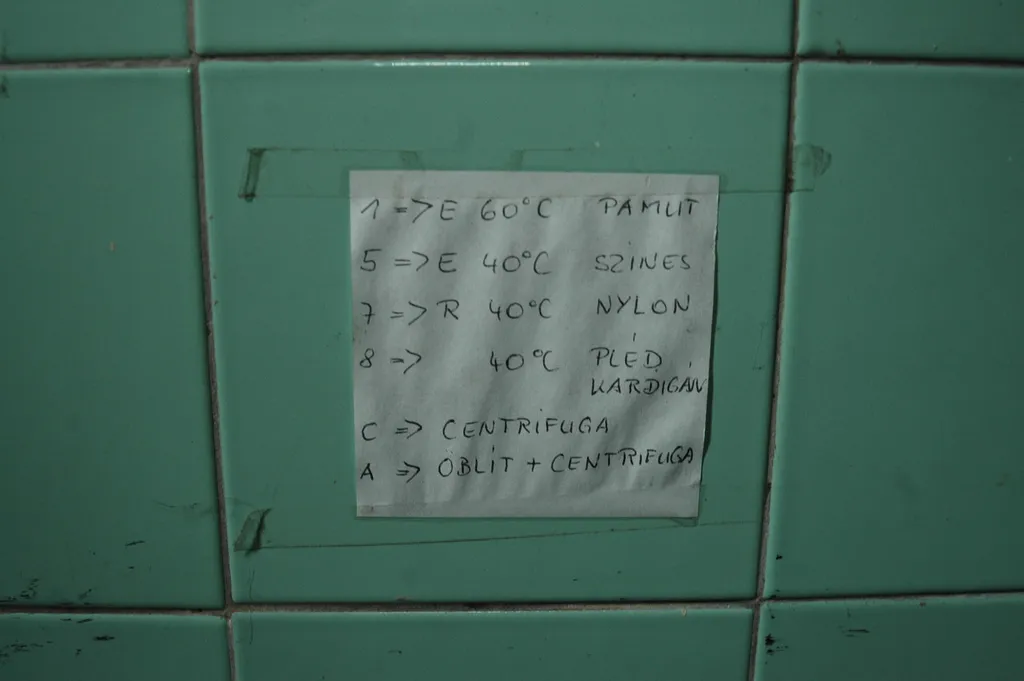 1 => E 60°C PAMUT
5 => E 40°C SZÍNES
7 => R 40°C NYLON
8 => 40°C PLÉD,
KARDIGÁN
C => CENTRIFUGA
A => ÖBLÍT + CENTRIFUGA